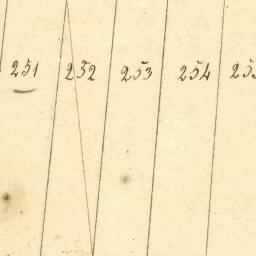 251 252 253 254